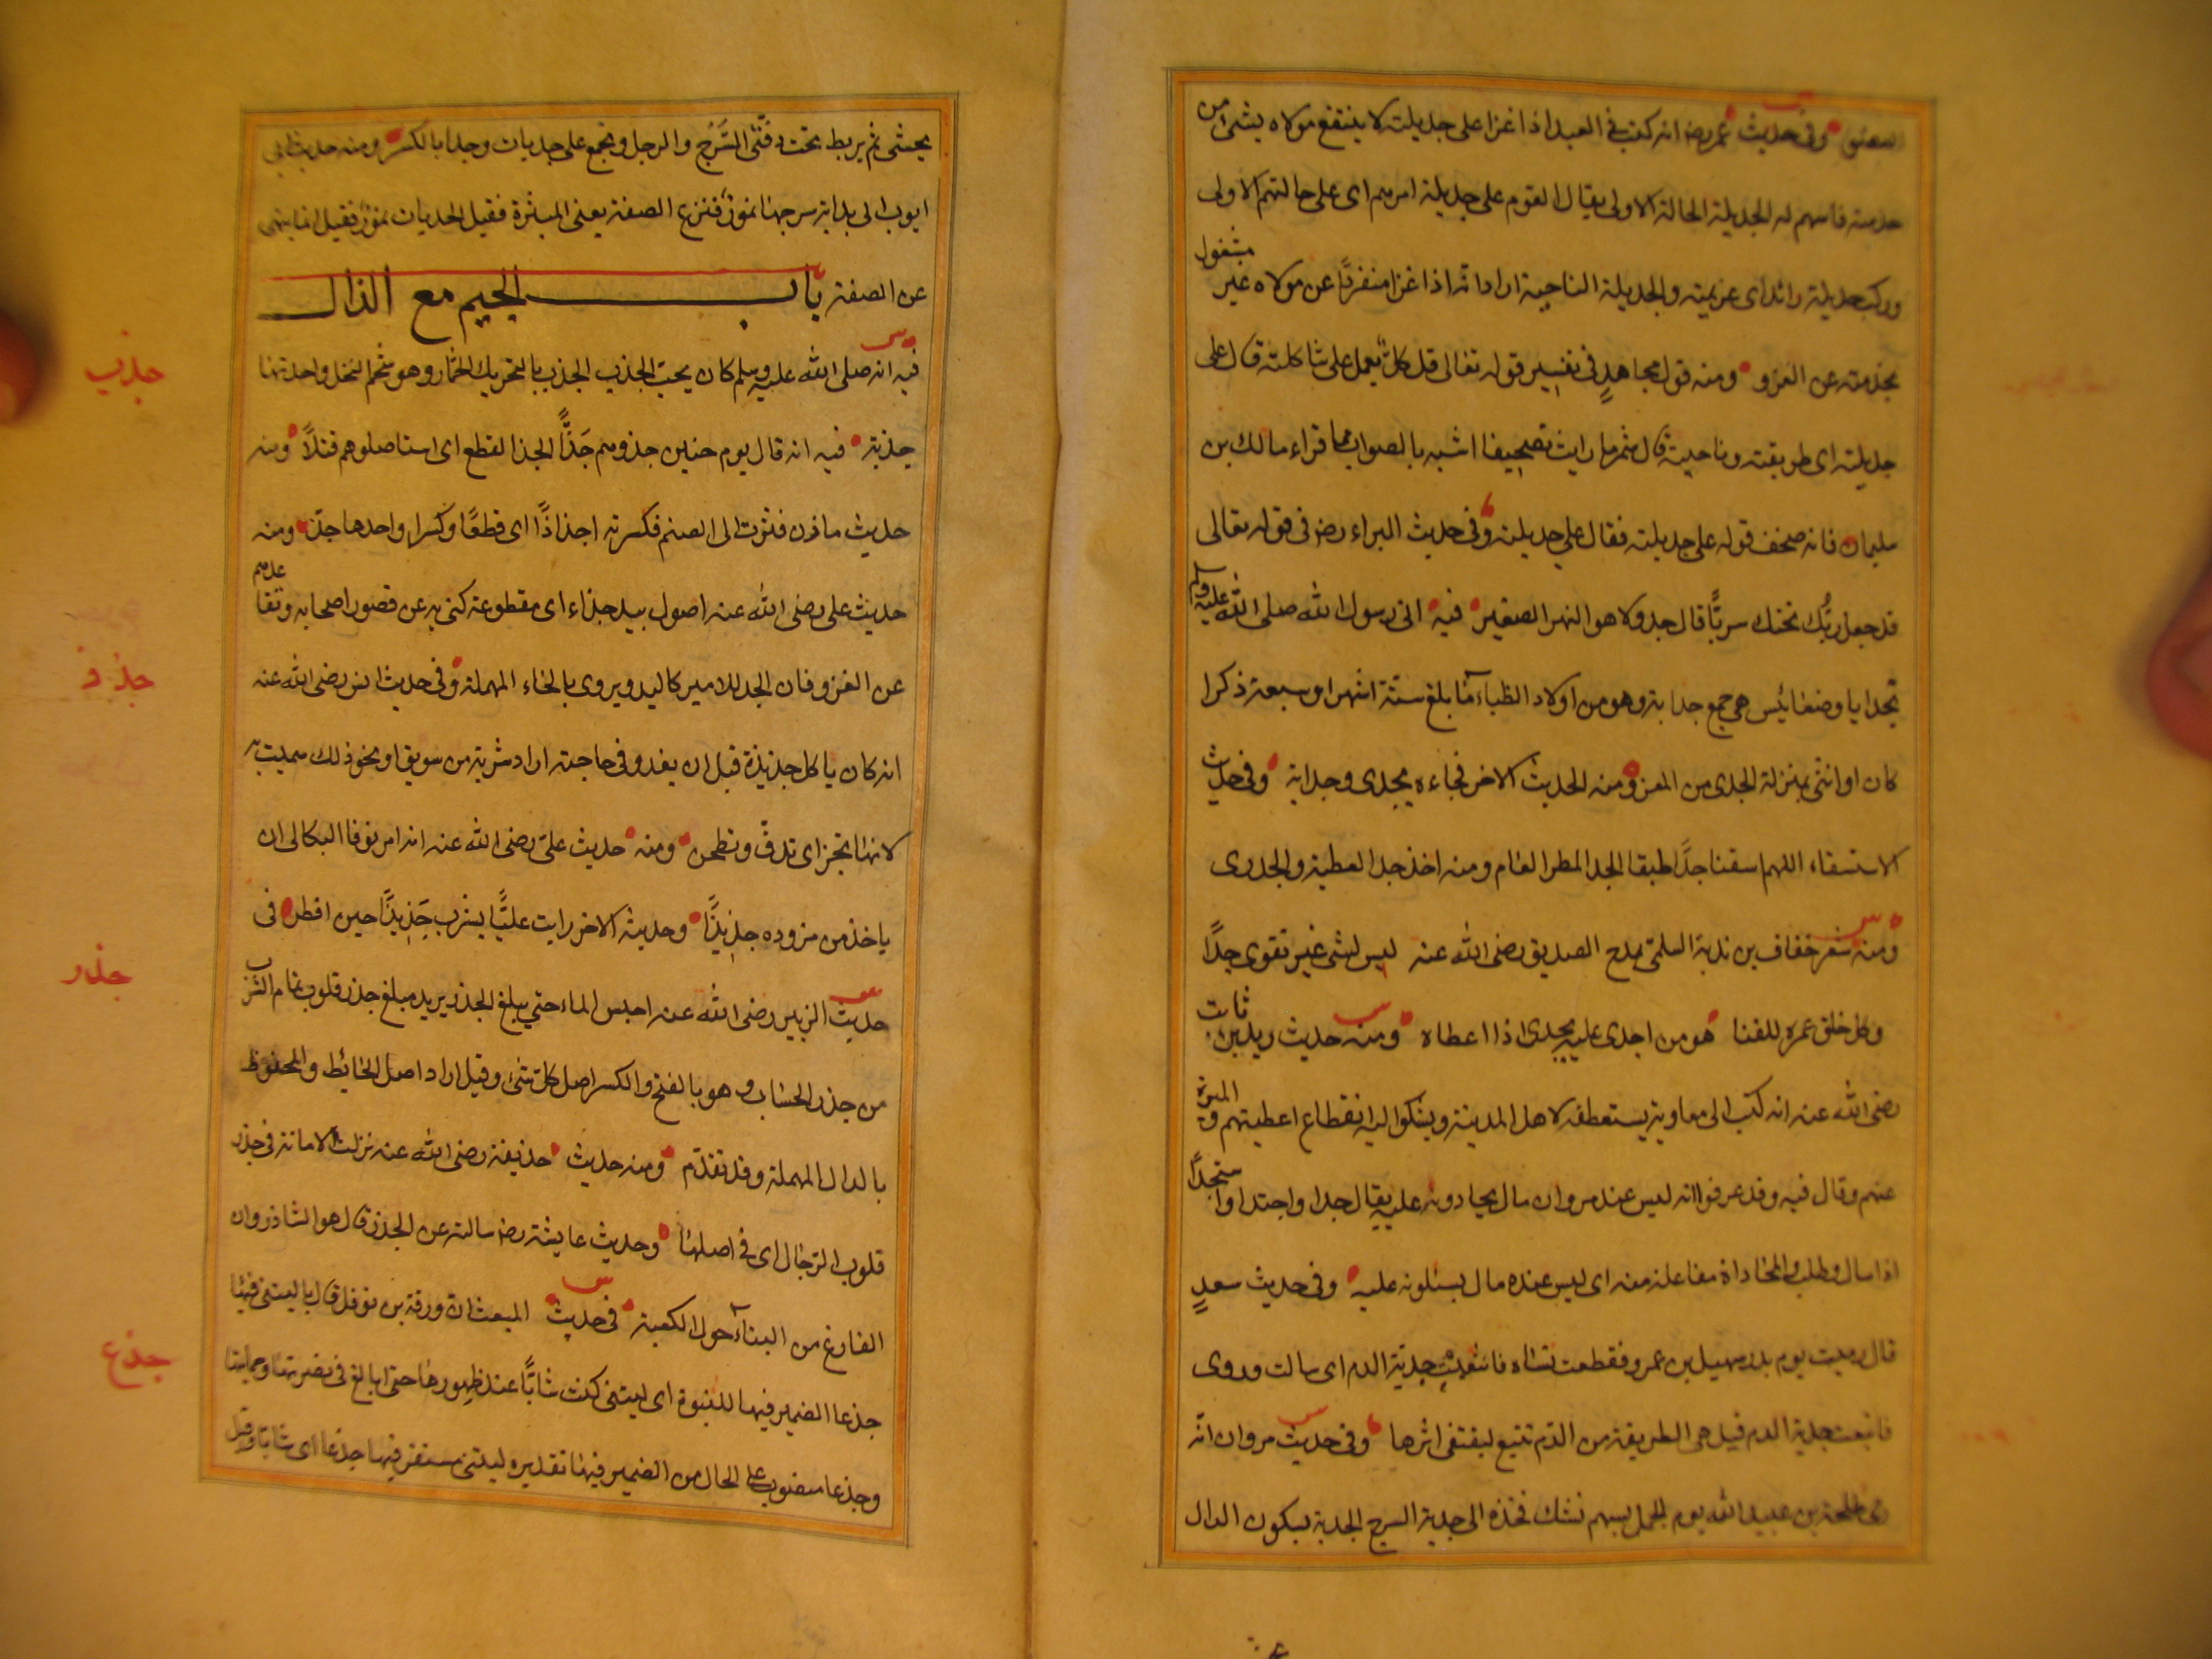 العنق وفي حديث عمر رض انه كتب في العبد اذا غزا على جديلته لا ينتفع مولاه بشئ من
خدمته فاسهم له الجديلة الحالة الاولى يقال القوم على جديلة امرهم اى على حالتهم الاولى
وركب جديلة رائه اى عزيمته والجديلة الناحية اراد انه اذا غزا منفردًا عن مولاه غير مشغول
بخدمته عن الغزو ومنه قول مجاهدٍ فى تفسير قوله تعالى قل كلّ يعمل على شاكلته قال على
جديلته اى طريقته وناحيته قال شمر ما رايت تصحيفا اشبه بالصواب مما قراء مالك بن
سليمان فانه صحف قوله على جديلته فقال على حد يليه وفى حديث البراء رض فى قوله تعالى
قد جعل ربُّك تحتك سريًّا قال جدولا هو النهر الصغير فيه اتى رسول الله صلى الله عليه وسلم
بجدايا وضغابيس هى جمع جداية وهو من اولاد الظباء ما بلغ ستّة اشهر او سبعة ذكرا
كان او انثى بمنزلة الجدى من المعز ومنه الحديث الاخر فجاءه بجدى وجداية وفى حديث
الاستسقاء اللهم اسقنا جدًا طبقا الجدا المطر العام ومنه اخذ جدا العطية والجدوى
ومنه شعر خفاف بن ندبة السلمى يمدح الصديق رضى الله عنه ليس لشى غير تقوى جدًا
وكل خلق عمره للفنا هو من اجدى عليه يجدى اذا اعطاه ومنه حديث زيد بن ثابت
رضى الله عنه انه كتب الى معاوية يستعطفه لاهل المدينة ويشكوا اليه انقطاع اعطيتهم والميرة
عنهم وقال فيه وقد عرفوا انه ليس عند مروان مال يجادونه عليه يقال جدا واجتدا واستجدا
اذا سال وطلب والمجاداة مفاعلة منه اى ليس عنده مال يسئلونه عليه وفى حديث سعدٍ
قال رميت يوم بدر سهيل بن عمرو فقطعت نساه فانثعبت جديّة الدم اى سالت وروى
فانبعت جدية الدم قيل هى الطريقة من الدّم تتبع ليقتفى اثرها وفى حديث مروان انّه
رمى طلحة بن عبيد الله يوم الجمل بسهم فشك فخذه الى جدية السرج الجدية بسكون الدال
يحشى ثم يربط تحت دفّتى السَّرْج والرحل ويجمع على جديات وجدا بالكسر ومنه حديث ابى
ايوب اتى بدابة سرجها نمور فنزع الصفة يعنى الميثرة فقيل الجديات نمور فقيل انما ينهى
عن الصفة باب الجيم مع الذال
فيه انه صلى الله عليه وسلم كان يحب الجذب الجذب بالتحريك الجمار وهو شحم النخل واحدتها
جذبة فيه انه قال يوم حنين جذوهم جَذًّا الجذ القطع اى استاصلوهم قتلاً ومنه
حديث مازن فثرت الى الصنم فكسرته اجذاذًا اى قطعًا وكسرا واحدها جذ ومنه
حديث على رضى الله عنه اصول بيد جذاء اى مقطوعة كنى به عن قصور اصحابه وتقاعدهم
عن الغزو فان الجند للامير كاليد ويروى بالحاء المهملة وفى حديث انس رضى الله عنه
انه كان ياكل جذيذة قبل ان يغدو فى حاجته اراد شربة من سويق او نحو ذلك سميت به
لانها تجز اى تدقّ وتطحن ومنه حديث علىّ رضى الله عنه انه امر نوفا البكالى ان
ياخذ من مزوده جذيذًا وحديثه الاخر رايت عليًّا يشرب جَذِيذًا حين افطر فى
حديث الزبير رضى الله عنه احبس الماء حتى يبلغ الجذر يريد مبلغ جذر قلوب تمام الشرب
من جذر الحساب وهو بالفتح والكسر اصل كل شئ وقيل اراد اصل الحائط والمحفوظ
بالدال المهملة وقد تقدّم ومنه حديث حذيفة رضى الله عنه نزلت الامانة فى جذر
قلوب الرجال اى فى اصلها وحديث عايشة رض سالته عن الجذر قال هو الشاذروان
الفارغ من البناء حول الكعبة فى حديث المبعث ان ورقة بن نوفل قال يا ليتنى فيها
جذعا الضمير فيها للنبوة اى ليتنى كنت شابًّا عند ظهورها حتى ابالغ فى نصرتها وحمايتها
وجذعا منصوب على الحال من الضمير فيها تقديره ليتنى مستقر فيها جذعا اى شابا وقيل
جذب
جذذ
جذر
جذع